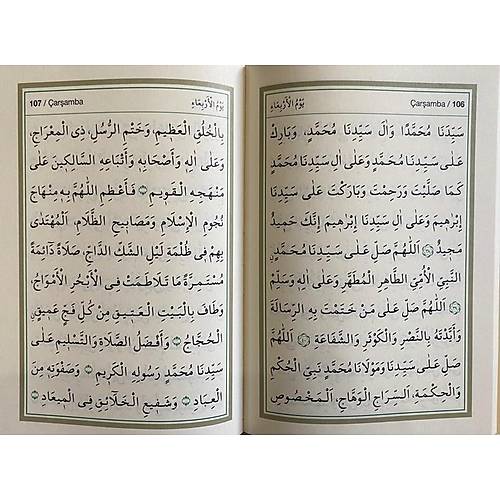 Çarşamba / 106 يَوْمُ الْاَرْبِعَاءِ
سَيِّدَنَا مُحَمَّدًا وَاٰلَ سَيِّدِنَا مُحَمَّدٍ، وَبَارِكْ
عَلٰى سَيِّدِنَا مُحَمَّدٍ وَعَلٰى اٰلِ سَيِّدِنَا مُحَمَّدٍ
كَمَا صَلَّيْتَ وَرَحِمْتَ وَبَارَكْتَ عَلٰى سَيِّدِنَا
اِبْرٰهِيمَ وَعَلٰى اٰلِ سَيِّدِنَا اِبْرٰهِيمَ اِنَّكَ حَمِيدٌ
مَجِيدٌ اَللّٰهُمَّ صَلِّ عَلٰى سَيِّدِنَا مُحَمَّدٍ
النَّبِيِّ الْاُمِّيِّ الطَّاهِرِ الْمُطَهَّرِ وَعَلٰى اٰلِهِ وَسَلِّمْ
اَللّٰهُمَّ صَلِّ عَلٰى مَنْ خَتَمْتَ بِهِ الرِّسَالَةَ
وَاَيَّدْتَهُ بِالنَّصْرِ وَالْكَوْثَرِ وَالشَّفَاعَةِ اَللّٰهُمَّ
صَلِّ عَلٰى سَيِّدِنَا وَمَوْلَانَا مُحَمَّدٍ نَبِيِّ الْحُكْمِ
وَالْحِكْمَةِ، اَلسِّرَاجِ الْوَهَّاجِ، اَلْمَخْصُوصِ
107 / Çarşamba يَوْمُ الْاَرْبِعَاءِ
بِالْخُلُقِ الْعَظِيمِ، وَخَتْمِ الرُّسُلِ، ذِى الْمِعْرَاجِ،
وَعَلٰى اٰلِهِ وَاَصْحَابِهِ وَاَتْبَاعِهِ السَّالِكِينَ عَلٰى
مَنْهَجِهِ الْقَوِيمِ فَاَعْظِمِ اللّٰهُمَّ بِهِ مِنْهَاجَ
نُجُومِ الْاِسْلَامِ وَمَصَابِيحِ الظَّلَامِ، اَلْمُهْتَدٰى
بِهِمْ فِى ظُلْمَةِ لَيْلِ الشَّكِّ الدَّاجِ، صَلَاةً دَائِمَةً
مُسْتَمِرَّةً مَا تَلَاطَمَتْ فِى الْاَبْحُرِ الْاَمْوَاجُ،
وَطَافَ بِالْبَيْتِ الْعَتِيقِ مِنْ كُلِّ فَجٍّ عَمِيقٍ
الْحُجَّاجُ وَاَفْضَلُ الصَّلَاةِ وَالتَّسْلِيمِ عَلٰى
سَيِّدِنَا مُحَمَّدٍ رَسُولِهِ الْكَرِيمِ وَصَفْوَتِهِ مِنَ
الْعِبَادِ وَشَفِيعِ الْخَلَائِقِ فِى الْمِيعَادِ